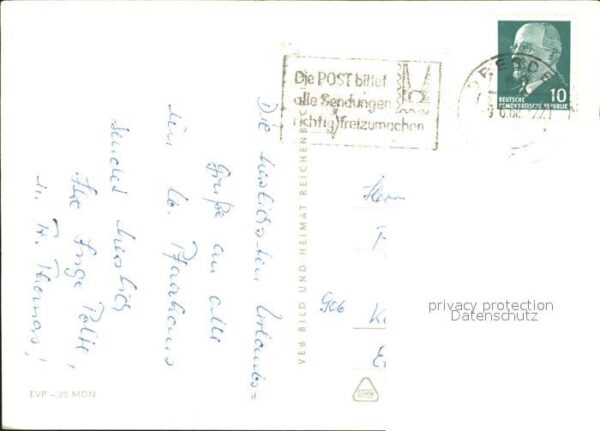 Die POST bittet
alle Sendungen
richtig freizumachen
DRESDE
10
DEUTSCHE
DEMOKRATISCHE REPUBLIK
Die herzlichsten Urlaubs=
Grüße an alle
im lb. Pfarrhaus
sendet herzlich
Ihre Inge
u. H. Thomas!
VEB BILD UND HEIMAT REICHENBACH
Herrn
F
K
privacy protection
Datenschutz
EVP –,25 MDN